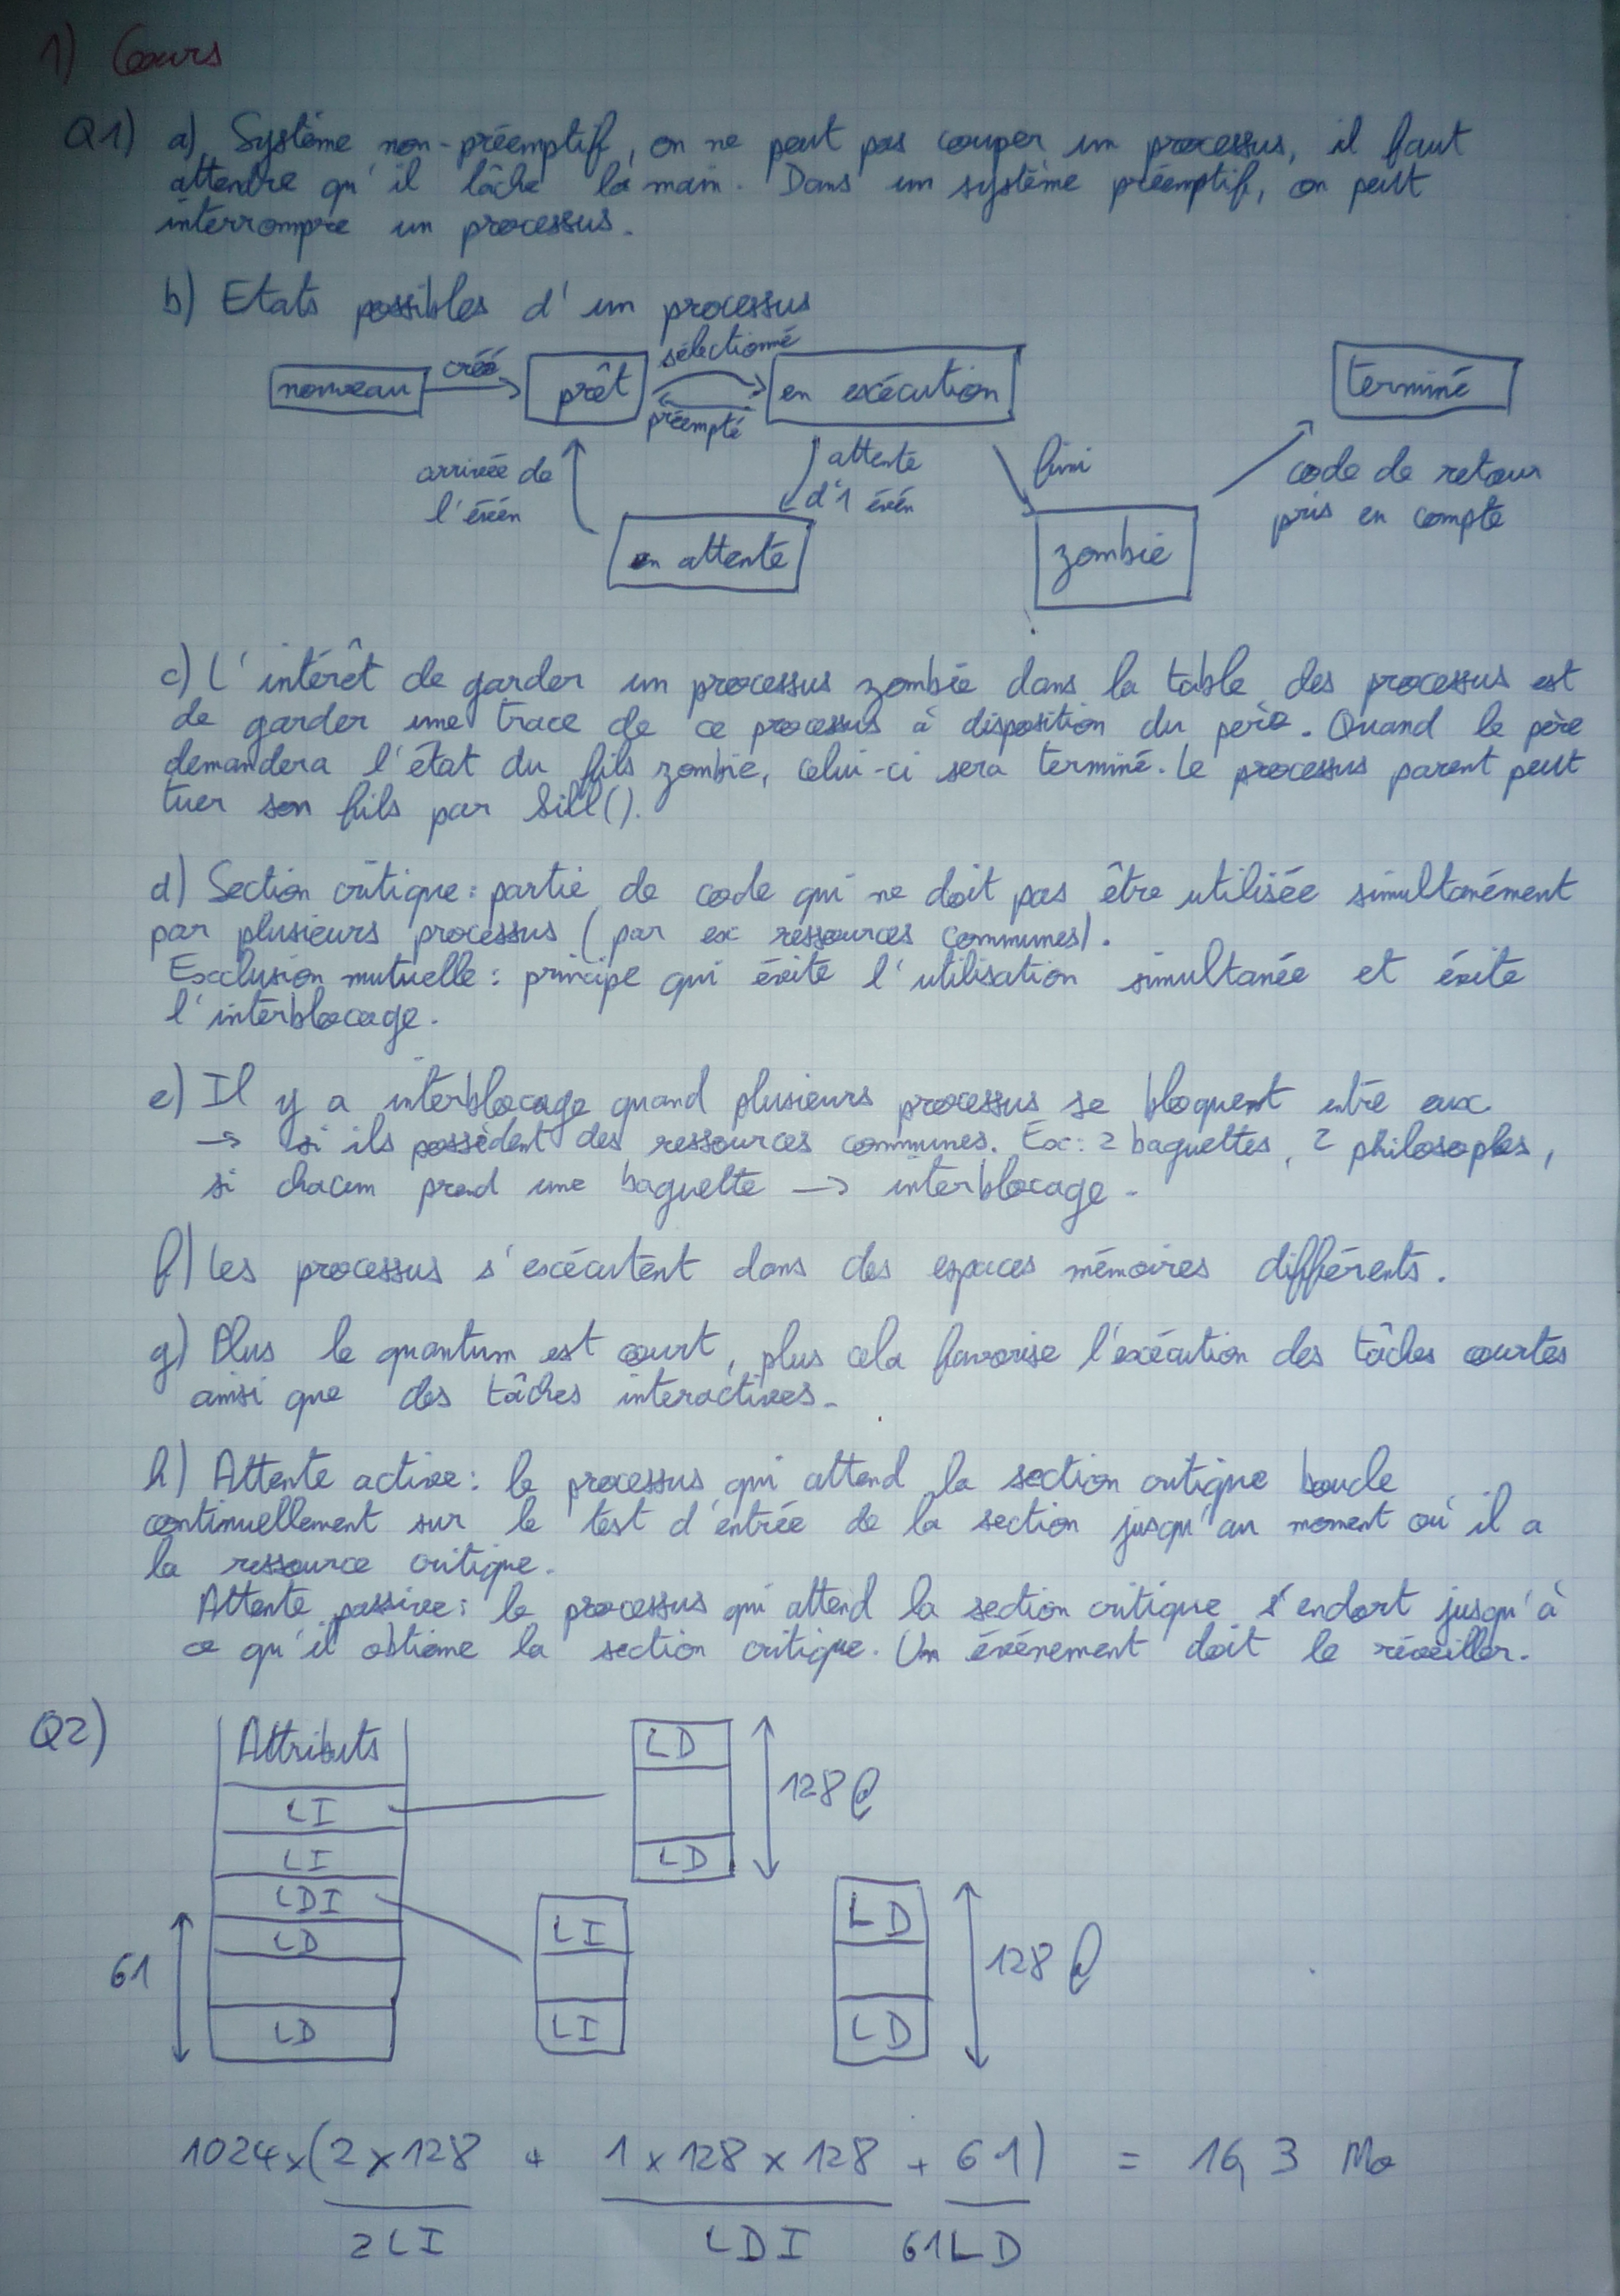 1) Cours
Q1) a) Système non-préemptif, on ne peut pas couper un processus, il faut
attendre qu'il lâche la main. Dans un système préemptif, on peut
interrompre un processus.
b) Etats possibles d'un processus
nouveau
créé
prêt
sélectionné
préempté
en exécution
terminé
arrivée de
l'évén
attente
d'1 évén
fini
code de retour
pris en compte
en attente
zombie
c) L'intérêt de garder un processus zombie dans la table des processus est
de garder une trace de ce processus à disposition du père. Quand le père
demandera l'état du fils zombie, celui-ci sera terminé. Le processus parent peut
tuer son fils par kill().
d) Section critique : partie de code qui ne doit pas être utilisée simultanément
par plusieurs processus (par ex ressources communes).
Exclusion mutuelle : principe qui évite l'utilisation simultanée et évite
l'interblocage.
e) Il y a interblocage quand plusieurs processus se bloquent entre eux
→ si ils possèdent des ressources communes. Ex : 2 baguettes, 2 philosophes,
si chacun prend une baguette → interblocage.
f) Les processus s'exécutent dans des espaces mémoires différents.
g) Plus le quantum est court, plus cela favorise l'exécution des tâches courtes
ainsi que des tâches interactives.
h) Attente active : le processus qui attend la section critique boucle
continuellement sur le test d'entrée de la section jusqu'au moment où il a
la ressource critique.
Attente passive : le processus qui attend la section critique s'endort jusqu'à
ce qu'il obtienne la section critique. Un événement doit le réveiller.
Q2)
Attributs
LI
LI
LDI
LD
LD
61
LD
LD
128 @
LI
LI
LD
LD
128 @
1024 x (2 x 128 + 1 x 128 x 128 + 61) = 16,3 Mo
2LI LDI 61LD